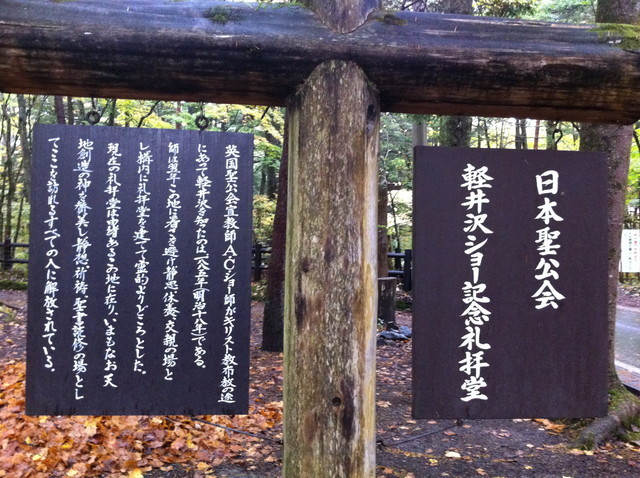 日本聖公会
軽井沢ショー記念礼拝堂
英国聖公会宣教師A.C.ショー師がキリスト教布教の途
にあって軽井沢を訪れたのは一八八五年(明治十八年)である。
師は翌年この地に暑さを避け静思、休養、交親の場と
し構内に礼拝堂を建てて霊的よりどころとした。
現在の礼拝堂は由緒あるこの地に在り、いまもなお天
地創造の神を讃美し静想、祈祷、聖書深修の場とし
てここを訪れるすべての人に解放されている。